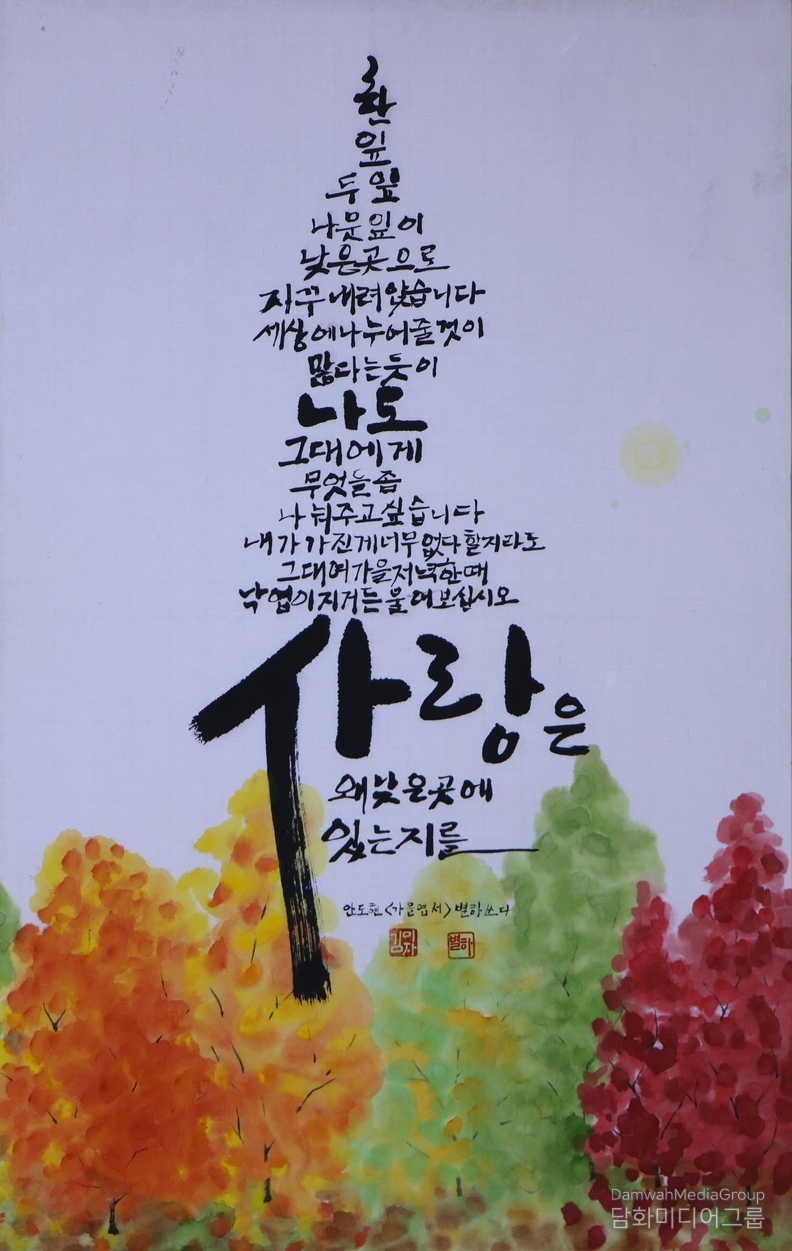 한
잎
두 잎
나뭇잎이
낮은곳으로
자꾸 내려앉습니다
세상에나누어줄것이
많다는듯이
나도
그대에게
무엇을좀
나눠주고싶습니다
내가 가진게너무없다 할지라도
그대여가을저녁한때
낙엽이지거든 물어보십시오
사랑은
왜낮은곳에
있는지를
안도현 <가을엽서> 별하쓰다
김미자
별하
DamwahMediaGroup
담화미디어그룹